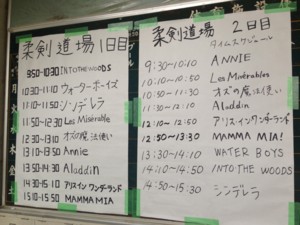 柔剣道場1日目
9:50-10:30 INTO THE WOODS
10:30-11:10 ウォーターボーイズ
11:10-11:50 シンデレラ
11:50-12:30 Les Misérable
12:30-13:10 オズの魔法使い
13:10-13:50 Annie
13:50-14:30 Aladdin
14:30-15:10 アリスインワンダーランド
15:10-15:50 MAMMA MIA
柔剣道場 2日目
タイムスケジュール
9:30~10:10 ANNIE
10:10~10:50 Les Misérables
10:50~11:30 オズの魔法使い
11:30~12:10 Aladdin
12:10~12:50 アリスインワンダーランド
12:50~13:30 MAMMA MIA!
13:30~14:10 WATER BOYS
14:10~14:50 INTO THE WOODS
14:50~15:30 シンデレラ
月
火
水
木
金
土